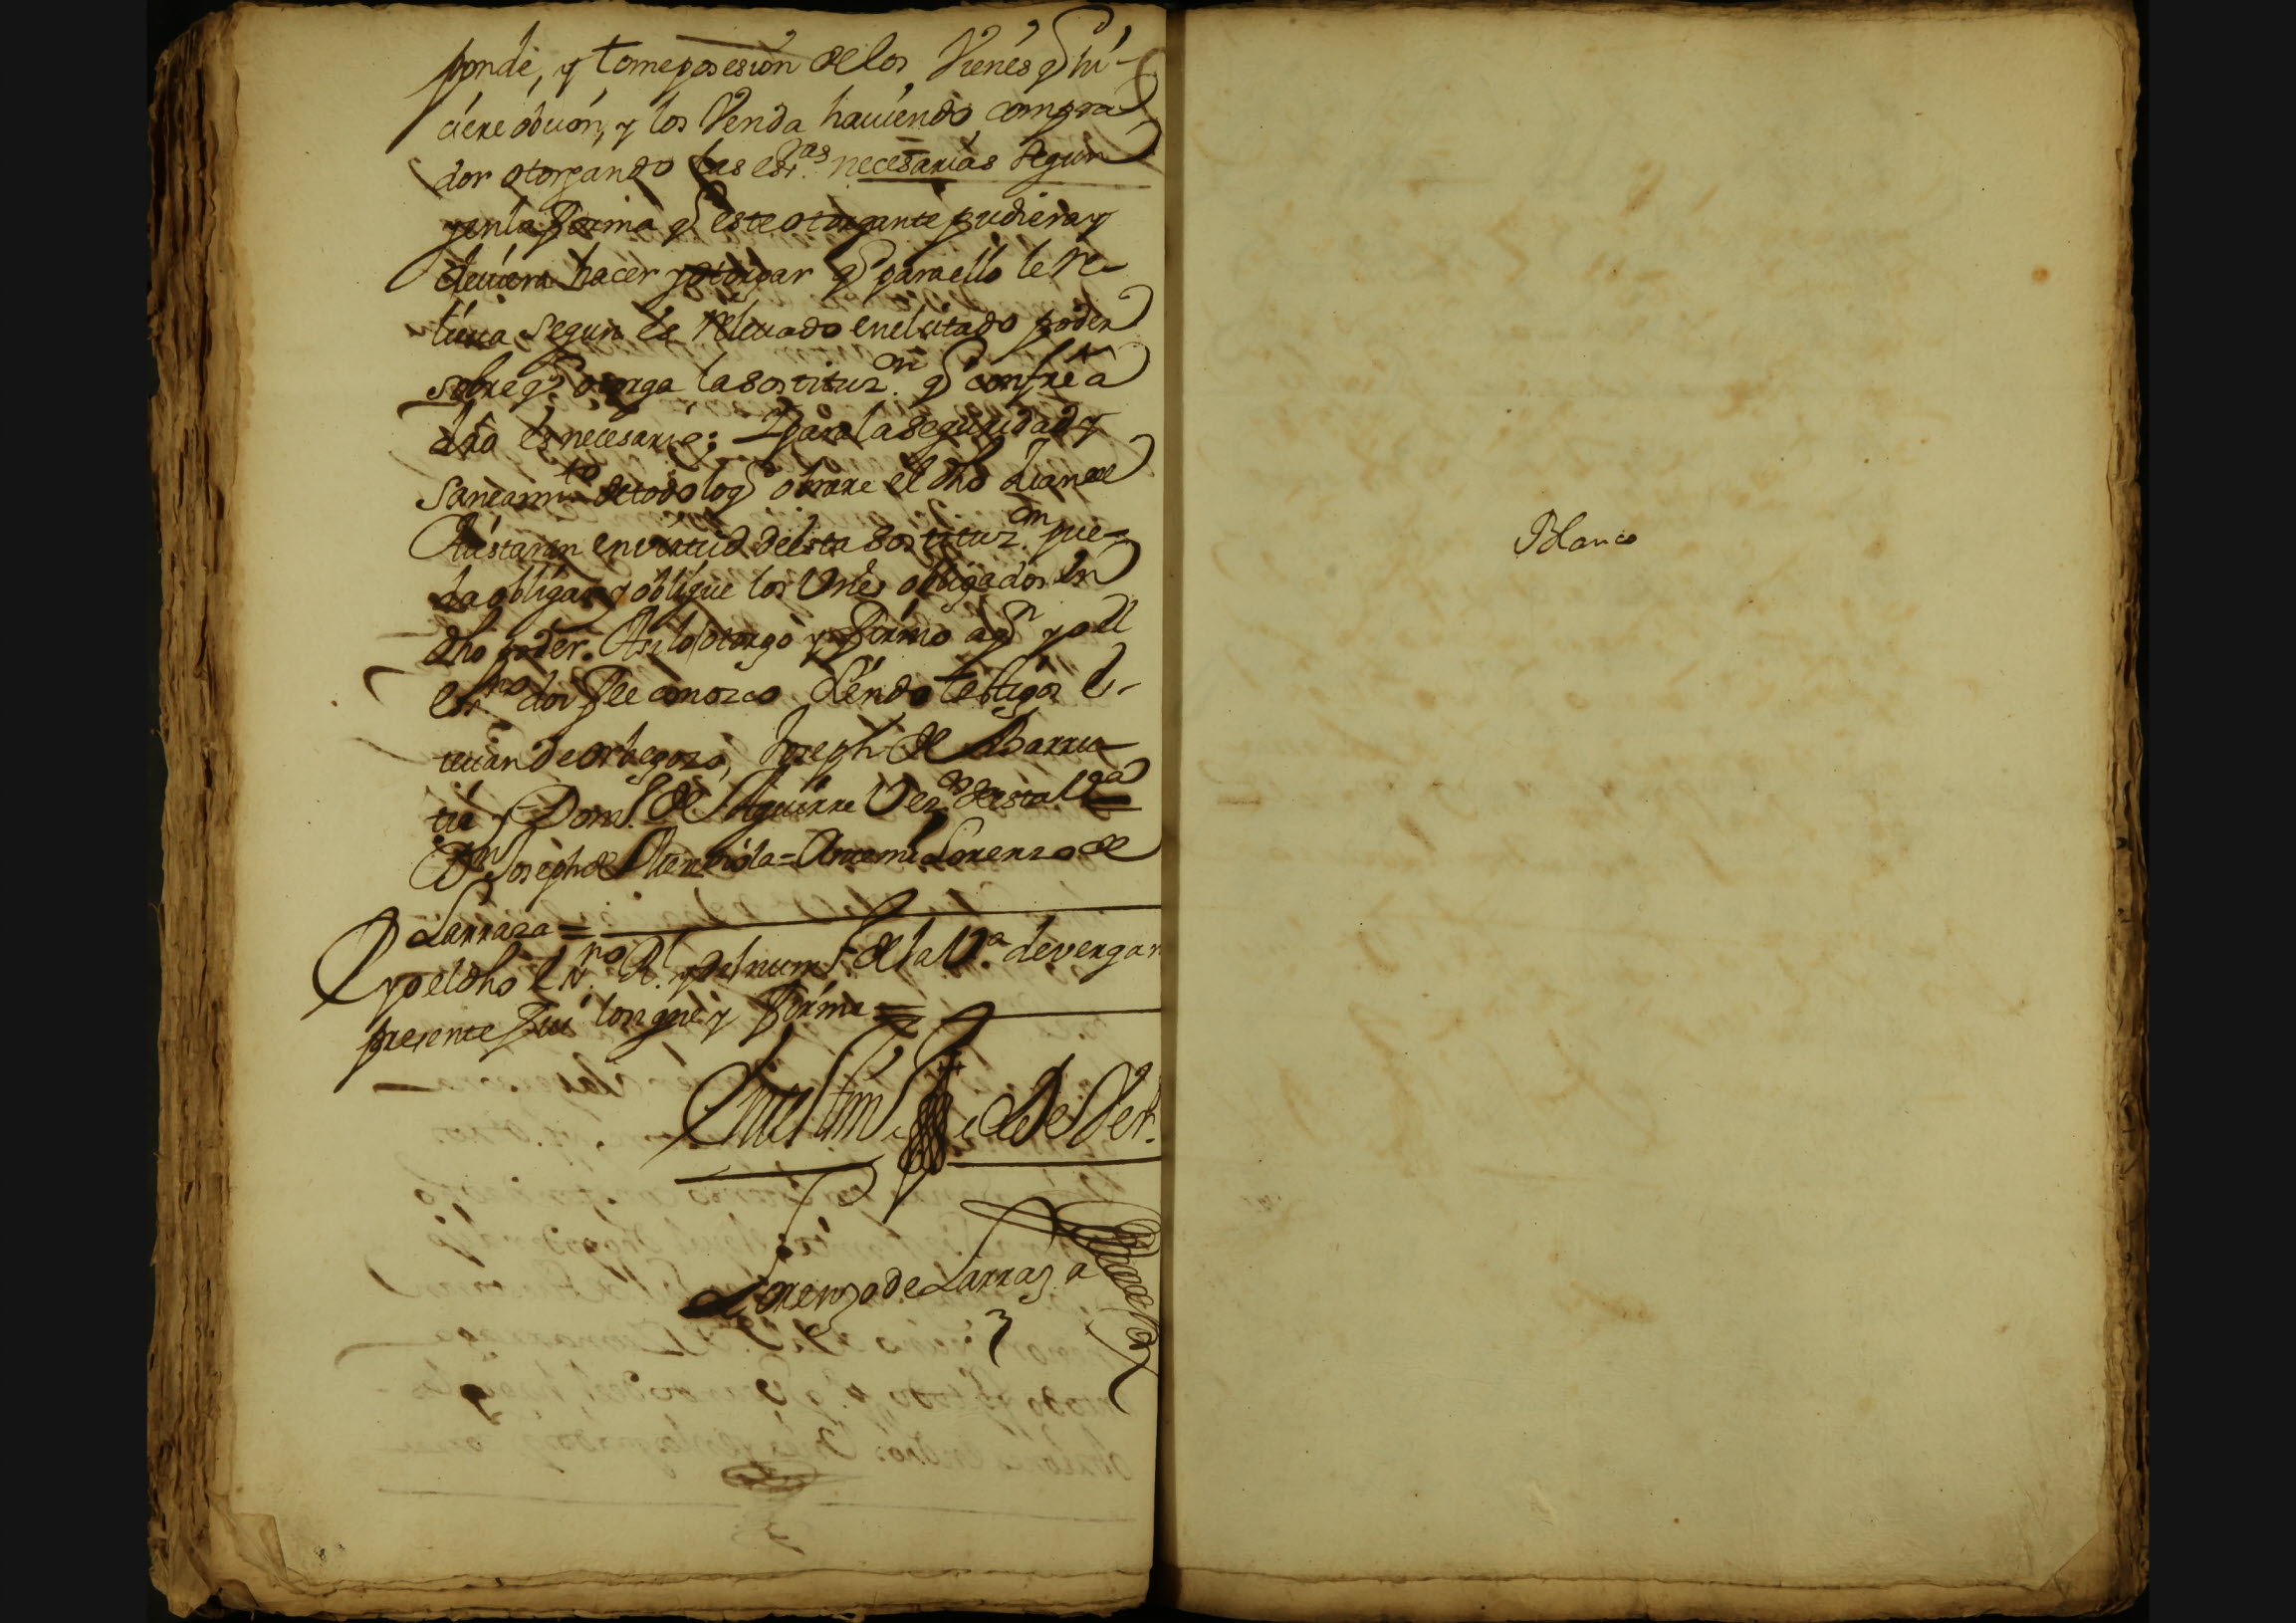 ponde, y tome posesion de los Vienes q̃ hi-
ciere obcion, y los Venda haviendo compra
dor otorgando las esr.as necesarias segun
y en la forma q̃ este otorgante pudiera y
deviera hacer y otorgar q̃ para ello le re-
lieva segun es relevado en el citado poder
sobre q̃ otorga la sostituz.on q̃ conforme a
dro es necesario; Y para la seguridad y
saneam.to de todo lo q̃ obrare el dho Lian de
en virtud de esta sostituz.on que-
da obligar y obligue los Vnes obligados en
dho poder. Asi lo otorgo y firmo a q̃n yo el
esn.no doi fee conozco siendo testigos E-
de Orbegozo, Joseph de Barru-
tia y Dom.o de Aguirre Vez.os de esta V.a =
D.n Joseph de = Antemi Lorenzo de
Larraza =
Yo el dho En.no Rl. y del num.o de la V.a de vergar
presente fui lo signe y firme =
En testim.o de Ver.
Lorenzo de Larraza
Blanco